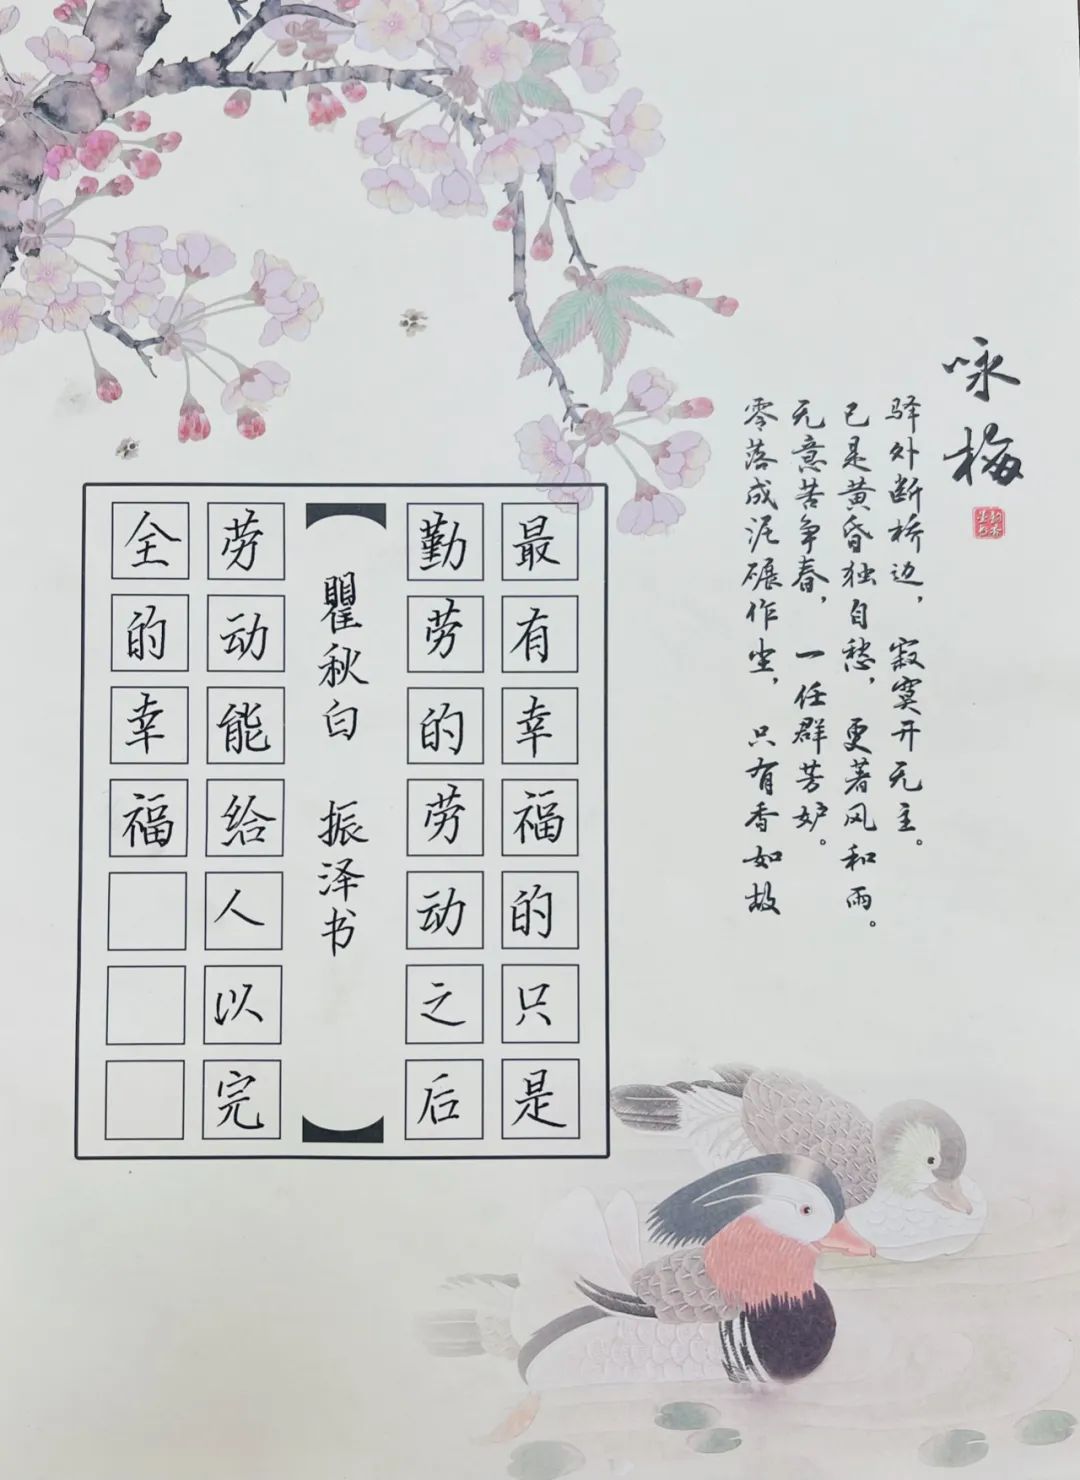 咏梅
驿外断桥边，寂寞开无主。
已是黄昏独自愁，更著风和雨。
无意苦争春，一任群芳妒。
零落成泥碾作尘，只有香如故
最有幸福的只是
勤劳的劳动之后
瞿秋白 振泽书
劳动能给人以完
全的幸福